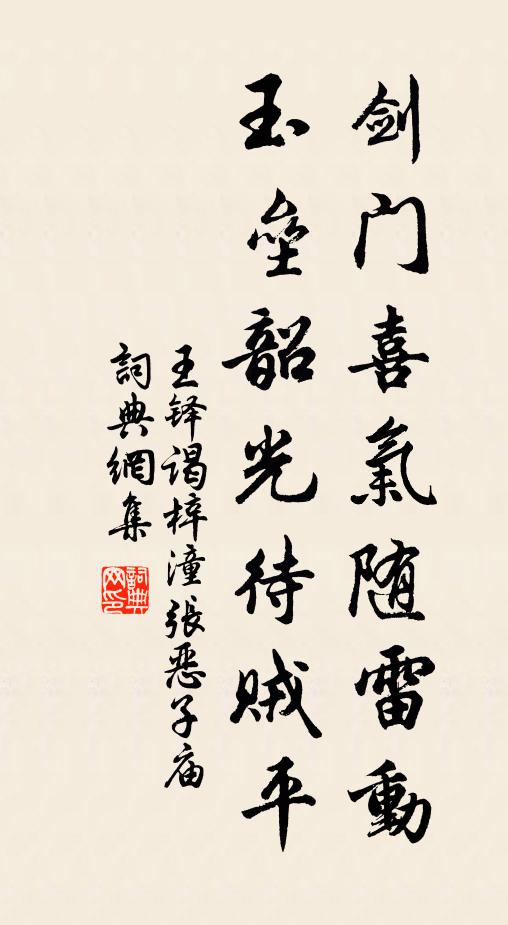 剑门喜氣随雷動
玉垒韶光待贼平
王铎谒梓潼張恶子庙
詞典網集
詞典网印